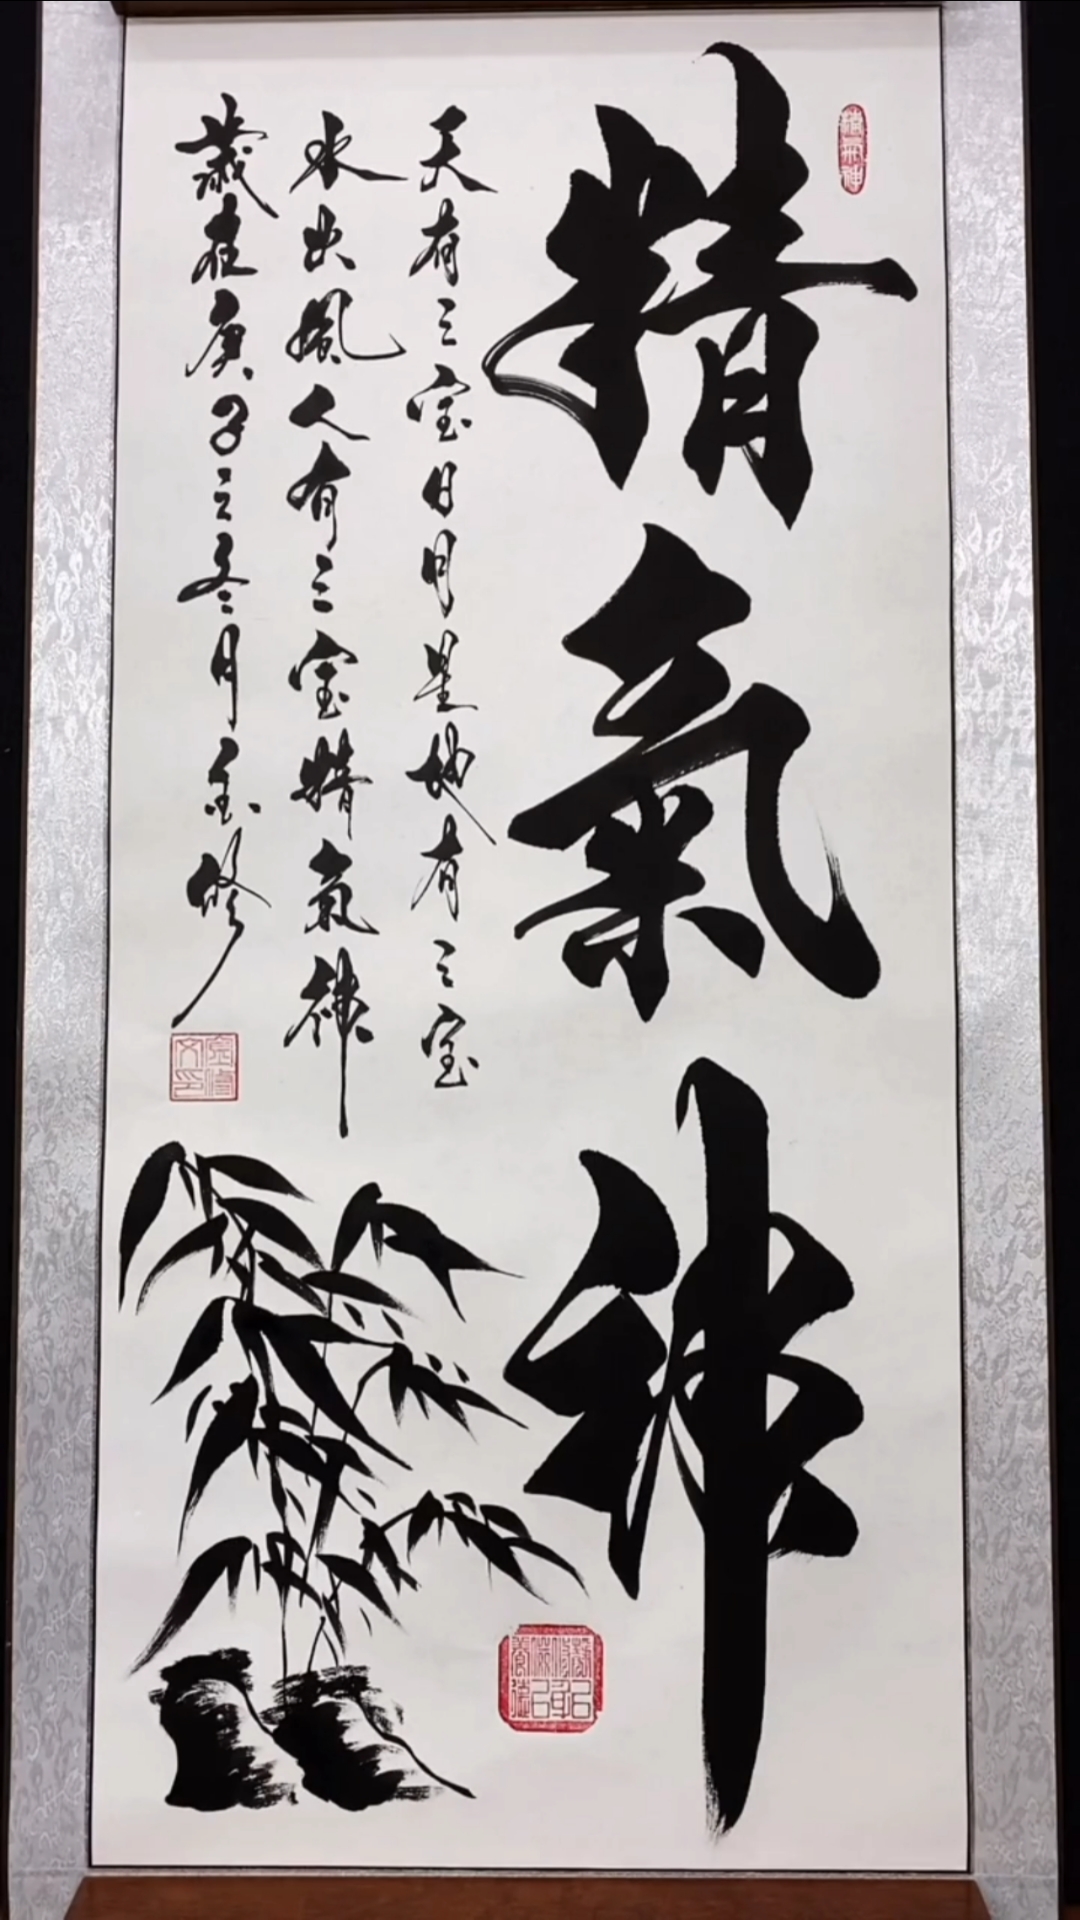 精氣神
天有三宝日月星地有三宝
水火風人有三宝精氣神
歳在庚子之冬月金修
精氣神